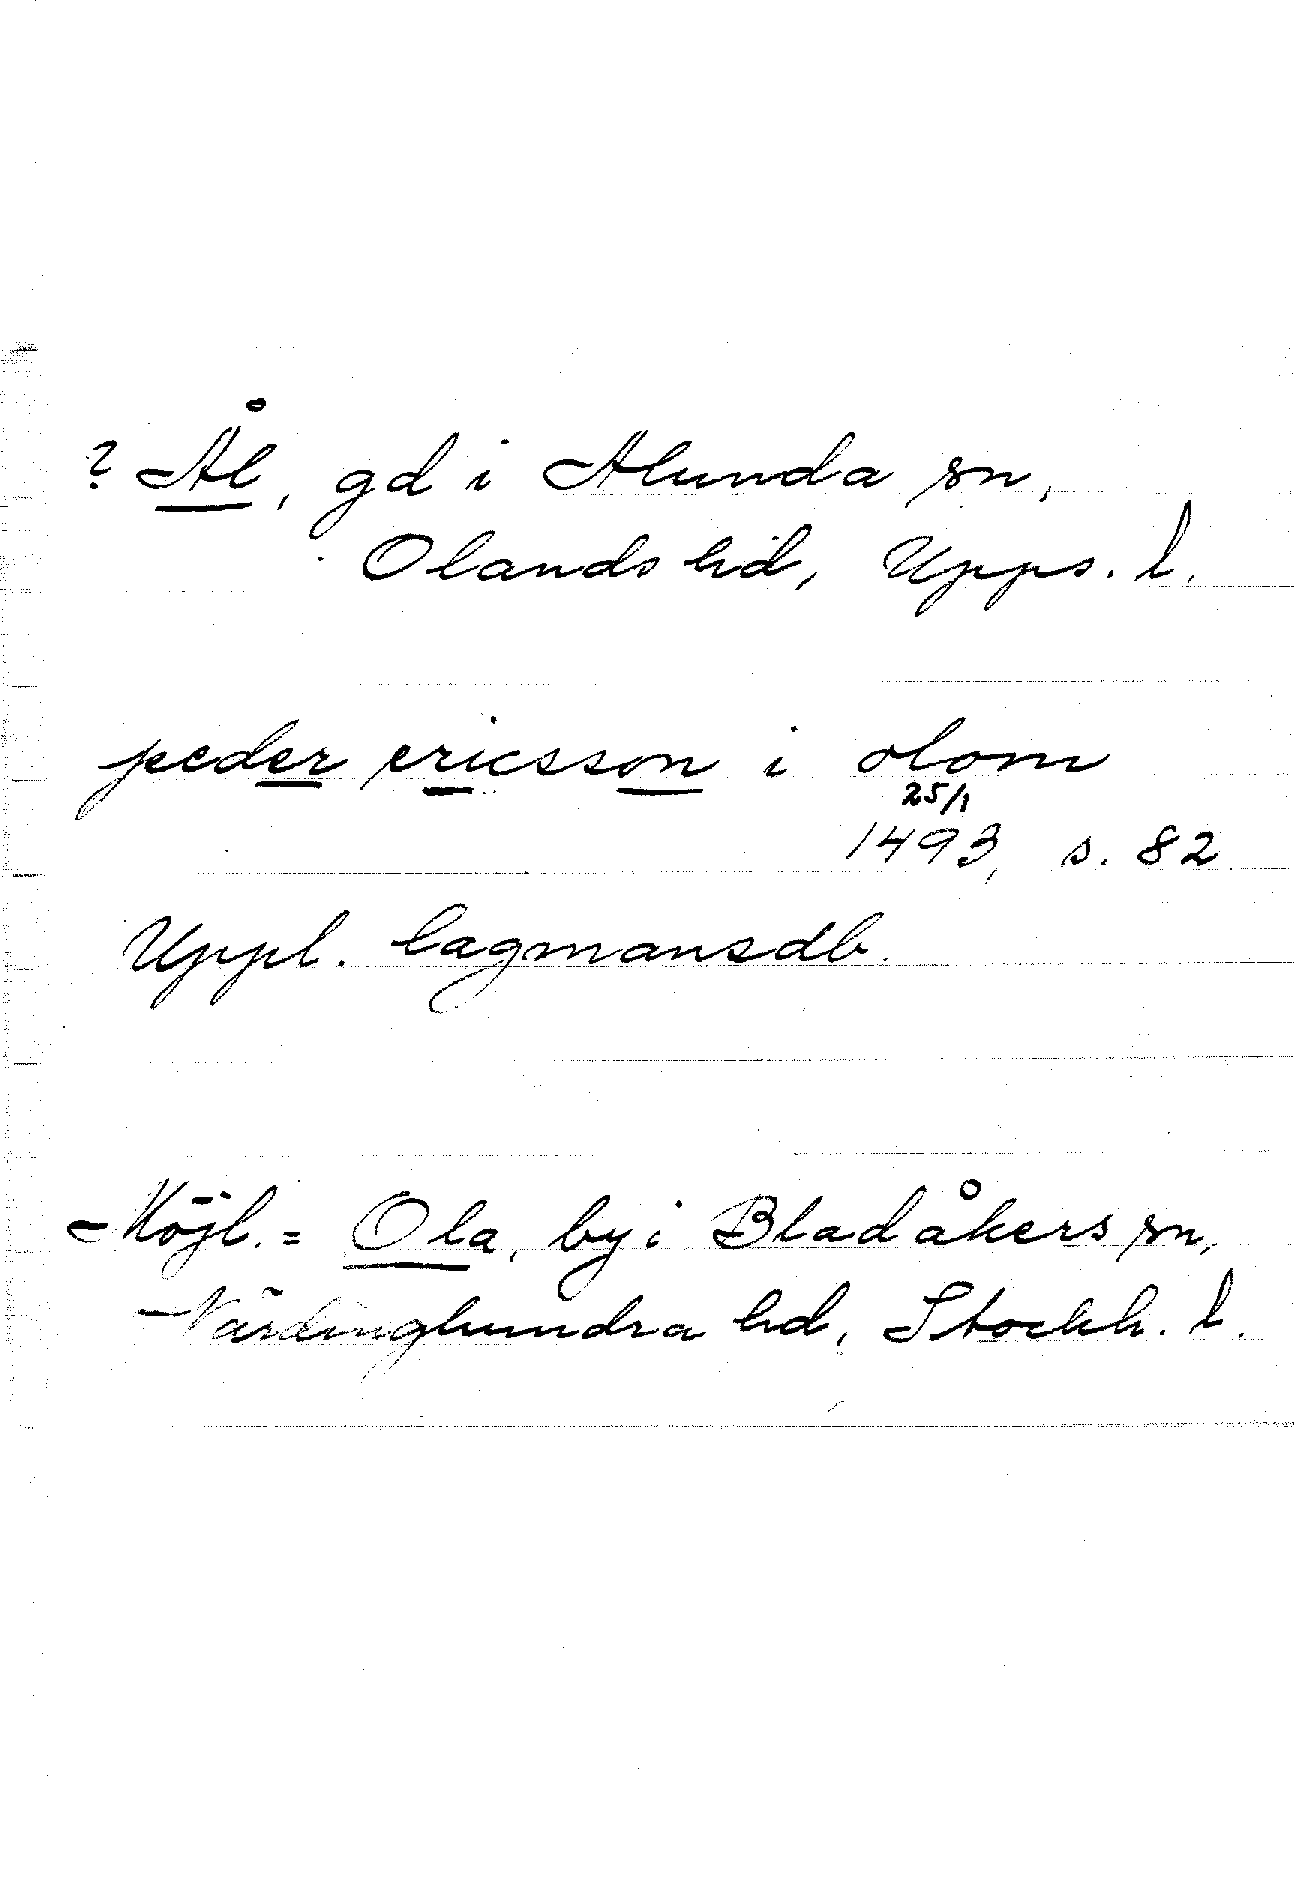 ? Ål, gd i Alunda sn,
Olands hd, Upps. l.
peder ericsson i olom
25/1
1493, s. 82
Uppl. lagmansdb.
Möjl. = Ola, by i Bladåkers sn,
Närdinghundra hd, Stockh. l.